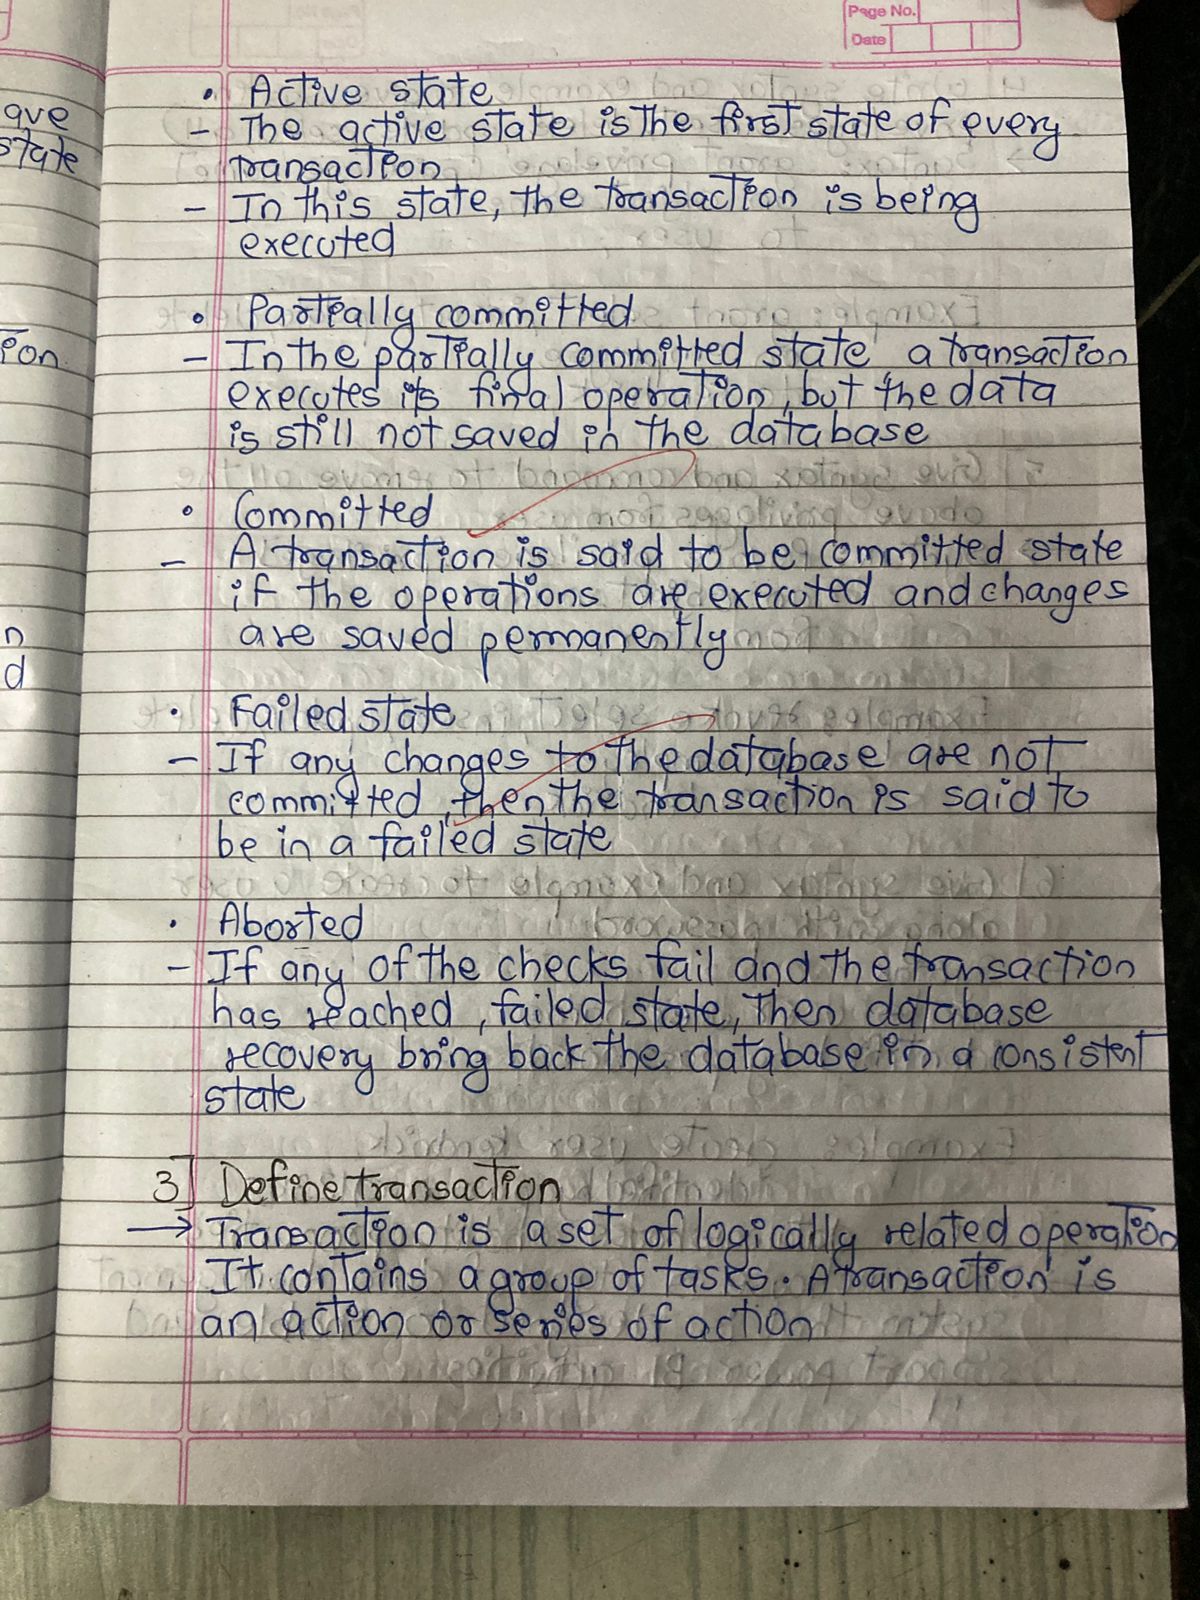 Page No.
Date
ave
state
ion
n
d
• Active state
- The active state is the first state of every
transaction
- In this state, the transaction is being
executed
• Partially committed
- In the partially committed state a transaction
executes its final operation, but the data
is still not saved in the database
• Committed
- A transaction is said to be committed state
if the operations are executed and changes
are saved permanently
• Failed state
- If any changes to the database are not
committed, then the transaction is said to
be in a failed state
• Aborted
- If any of the checks fail and the transaction
has reached, failed state, then database
recovery bring back the database in a consistent
state
3] Define transaction
→ Transaction is a set of logically related operation
It contains a group of tasks. A transaction is
an action or series of action